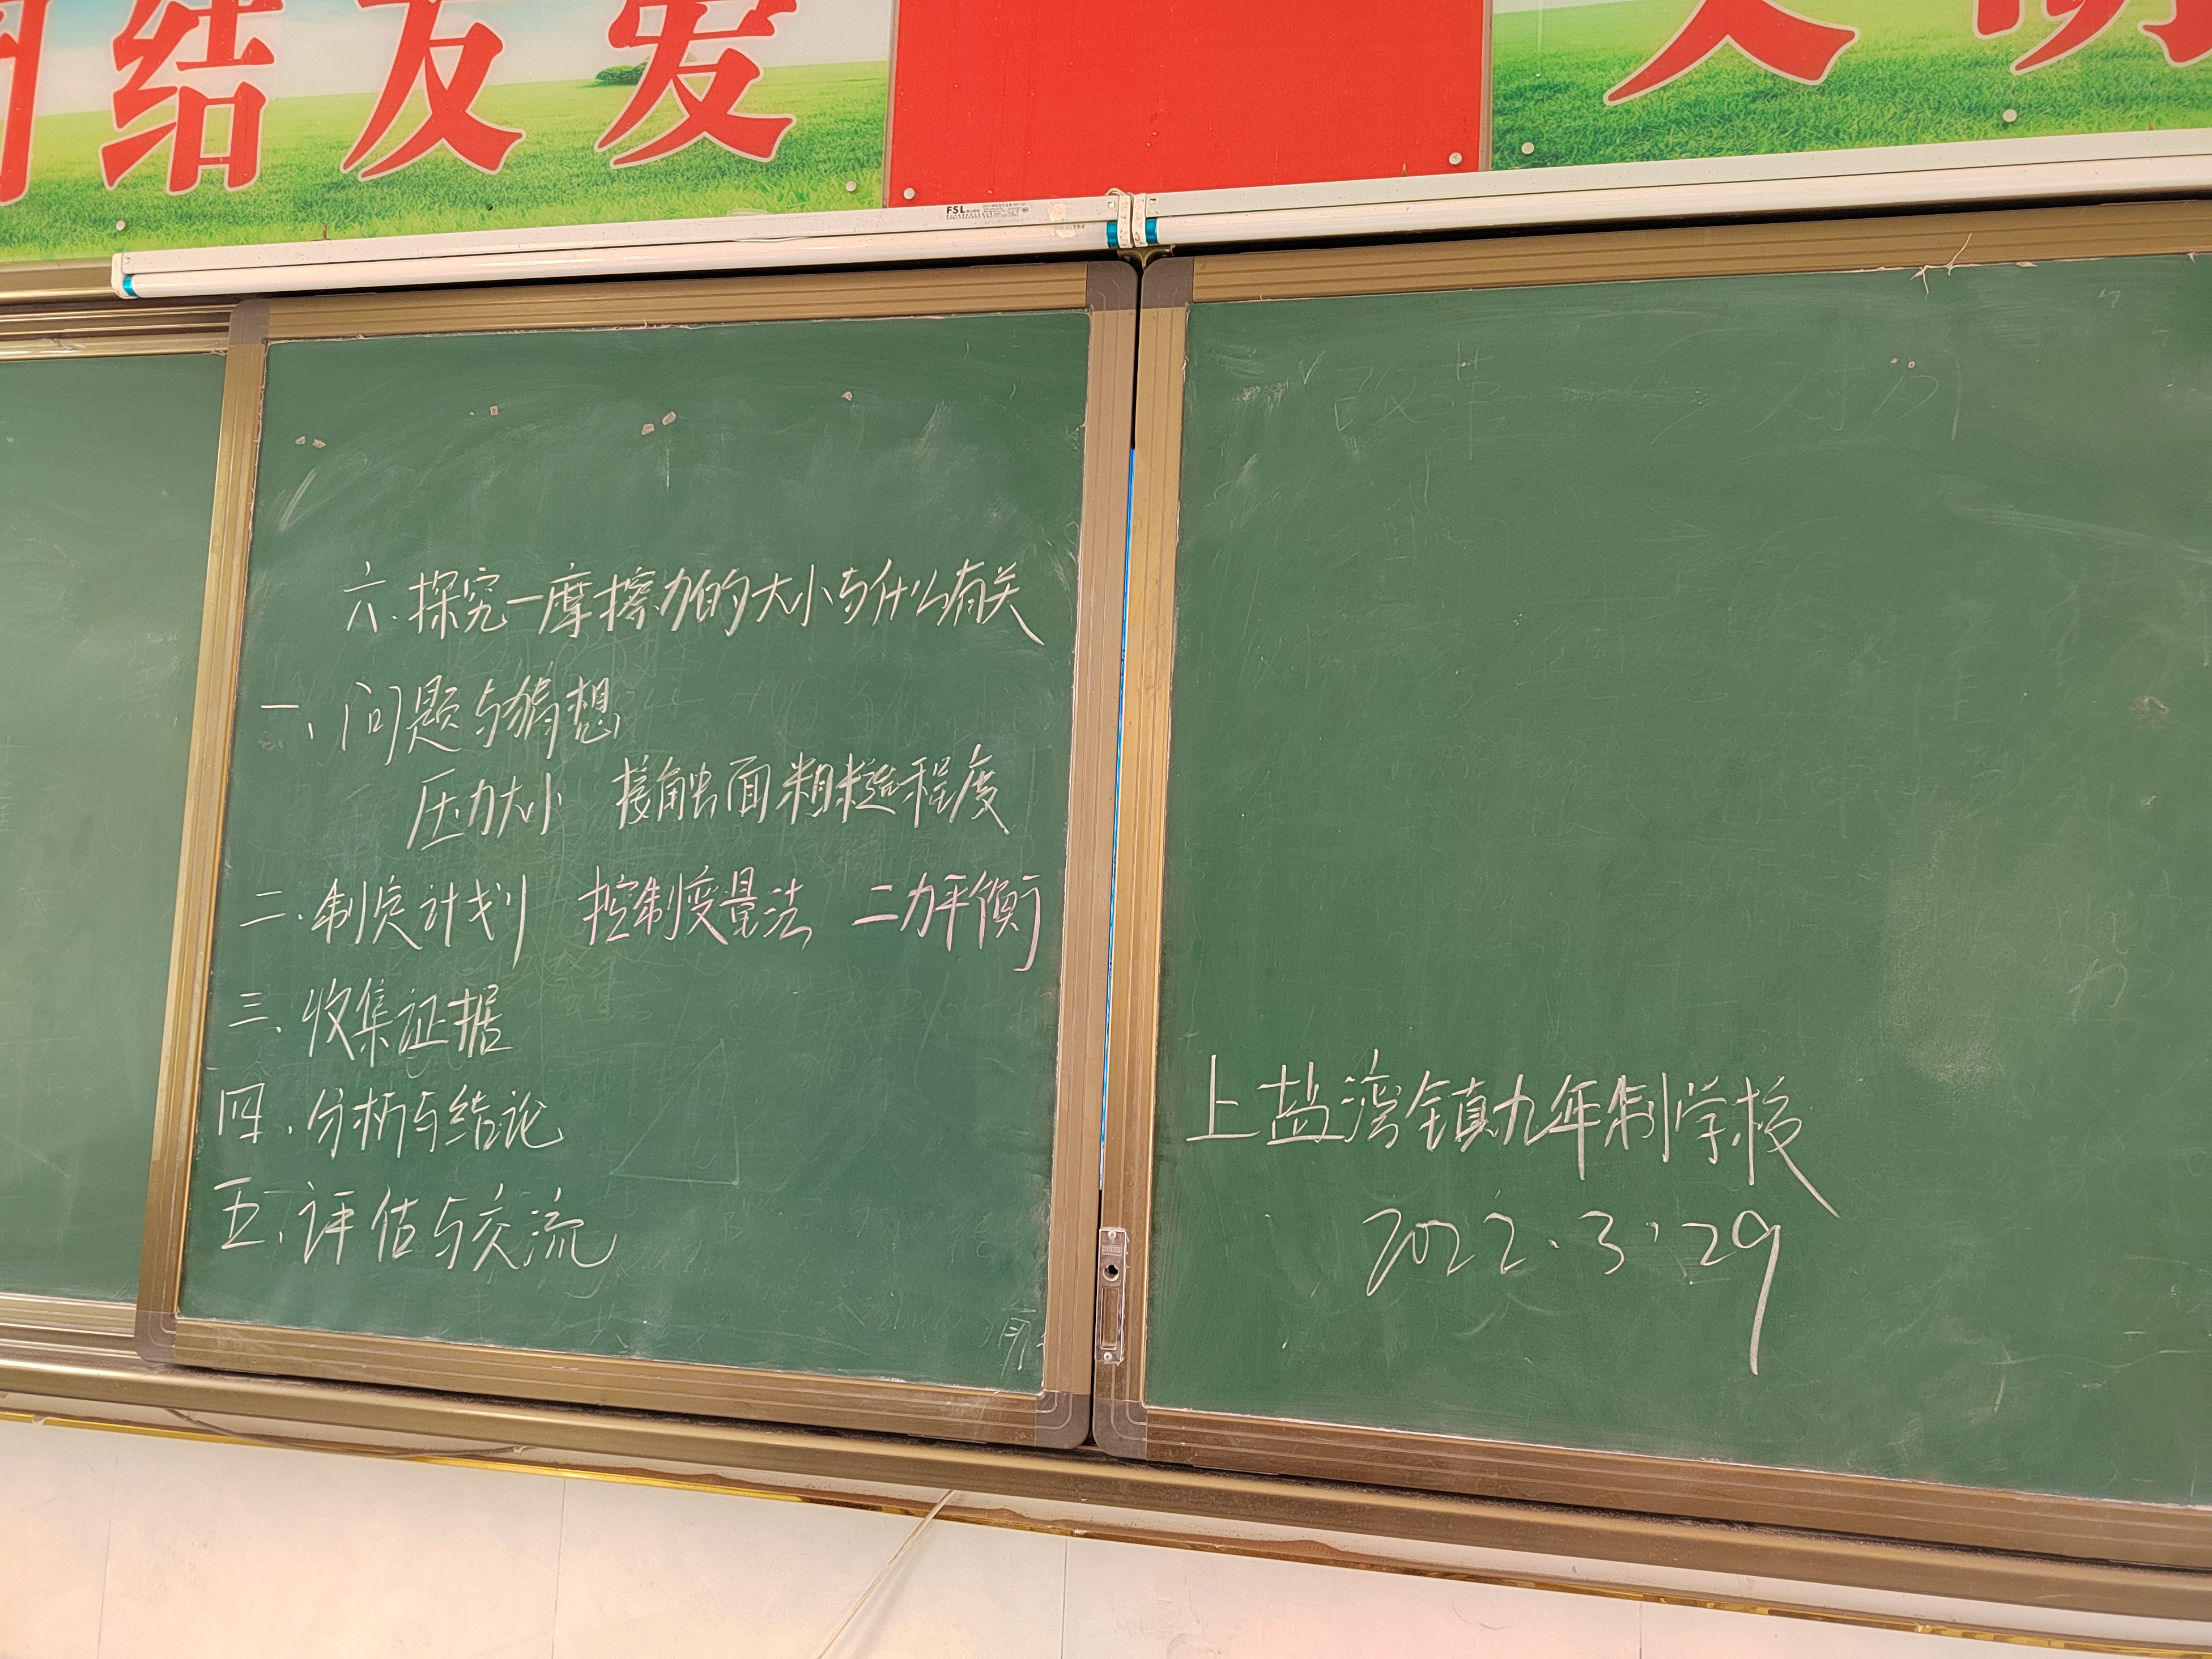 团结友爱
文明
FSL
六.探究一摩擦力的大小与什么有关
一、问题与猜想
压力大小 接触面粗糙程度
二.制定计划 控制变量法 二力平衡
三、收集证据
四.分析与结论
五、评估与交流
上盐湾镇九年制学校
2022.3.29